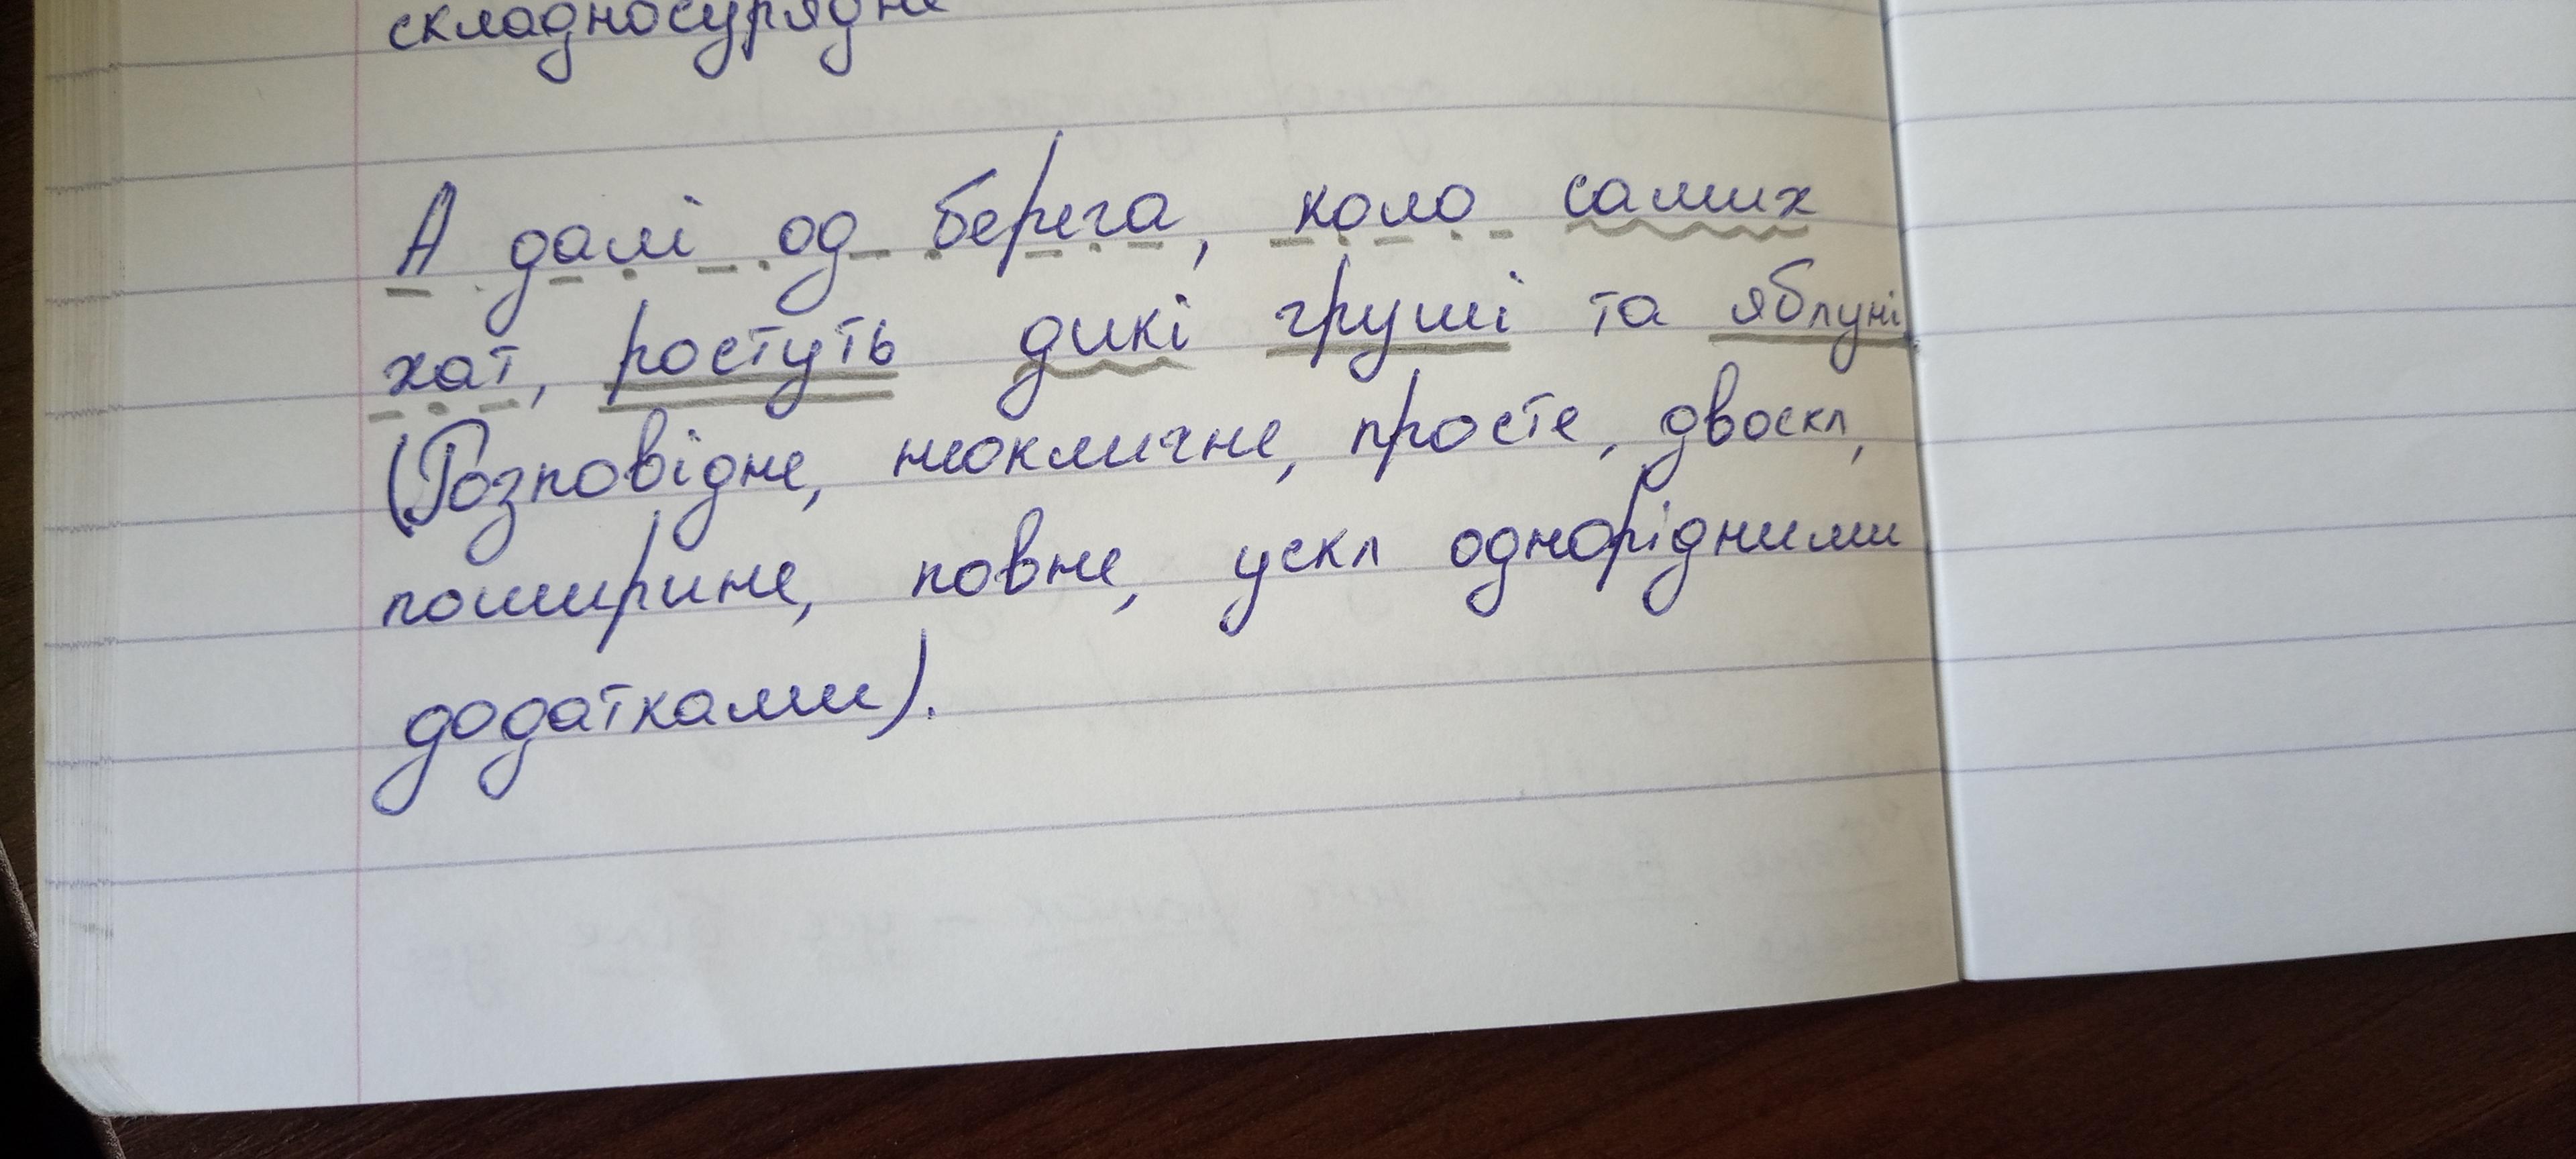 складносурядне
А далі од берега, коло самих
хат, ростуть дикі груші та яблуні
(Розповідне, неокличне, просте, двоскл,
поширине, повне, ускл однорідними
додатками).